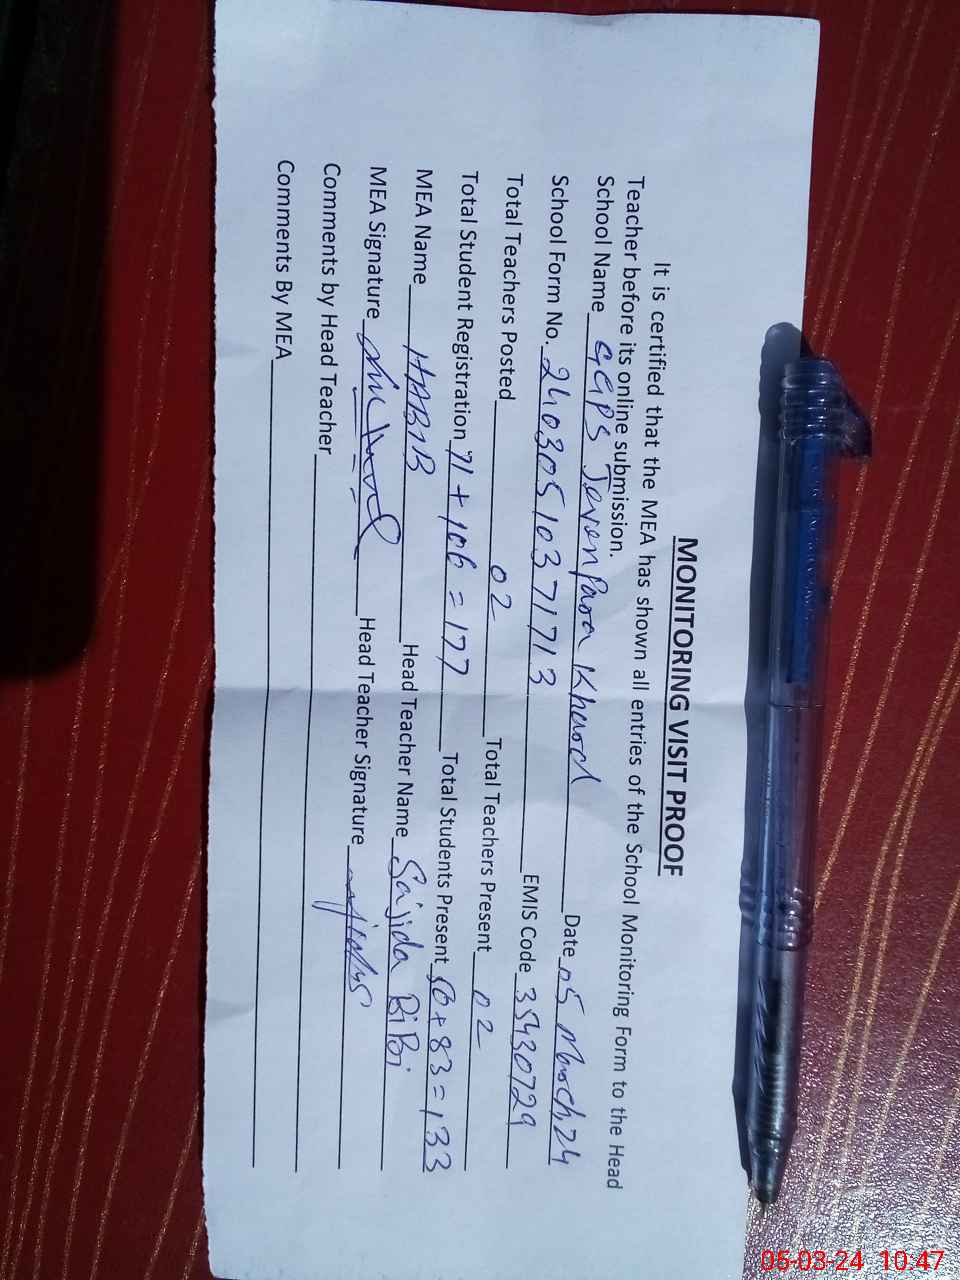 MONITORING VISIT PROOF
It is certified that the MEA has shown all entries of the School Monitoring Form to the Head
Teacher before its online submission.
School Name GGPS Jevan Para Kharod Date 05 March, 24
School Form No. 240305103717 13 EMIS Code 35430729
Total Teachers Posted 02 Total Teachers Present 02
Total Student Registration 71 + 106 = 177 Total Students Present 50 + 83 = 133
MEA Name HABIB Head Teacher Name Sajida BiBi
MEA Signature Head Teacher Signature
Comments by Head Teacher
Comments By MEA
05-03-24 10:47